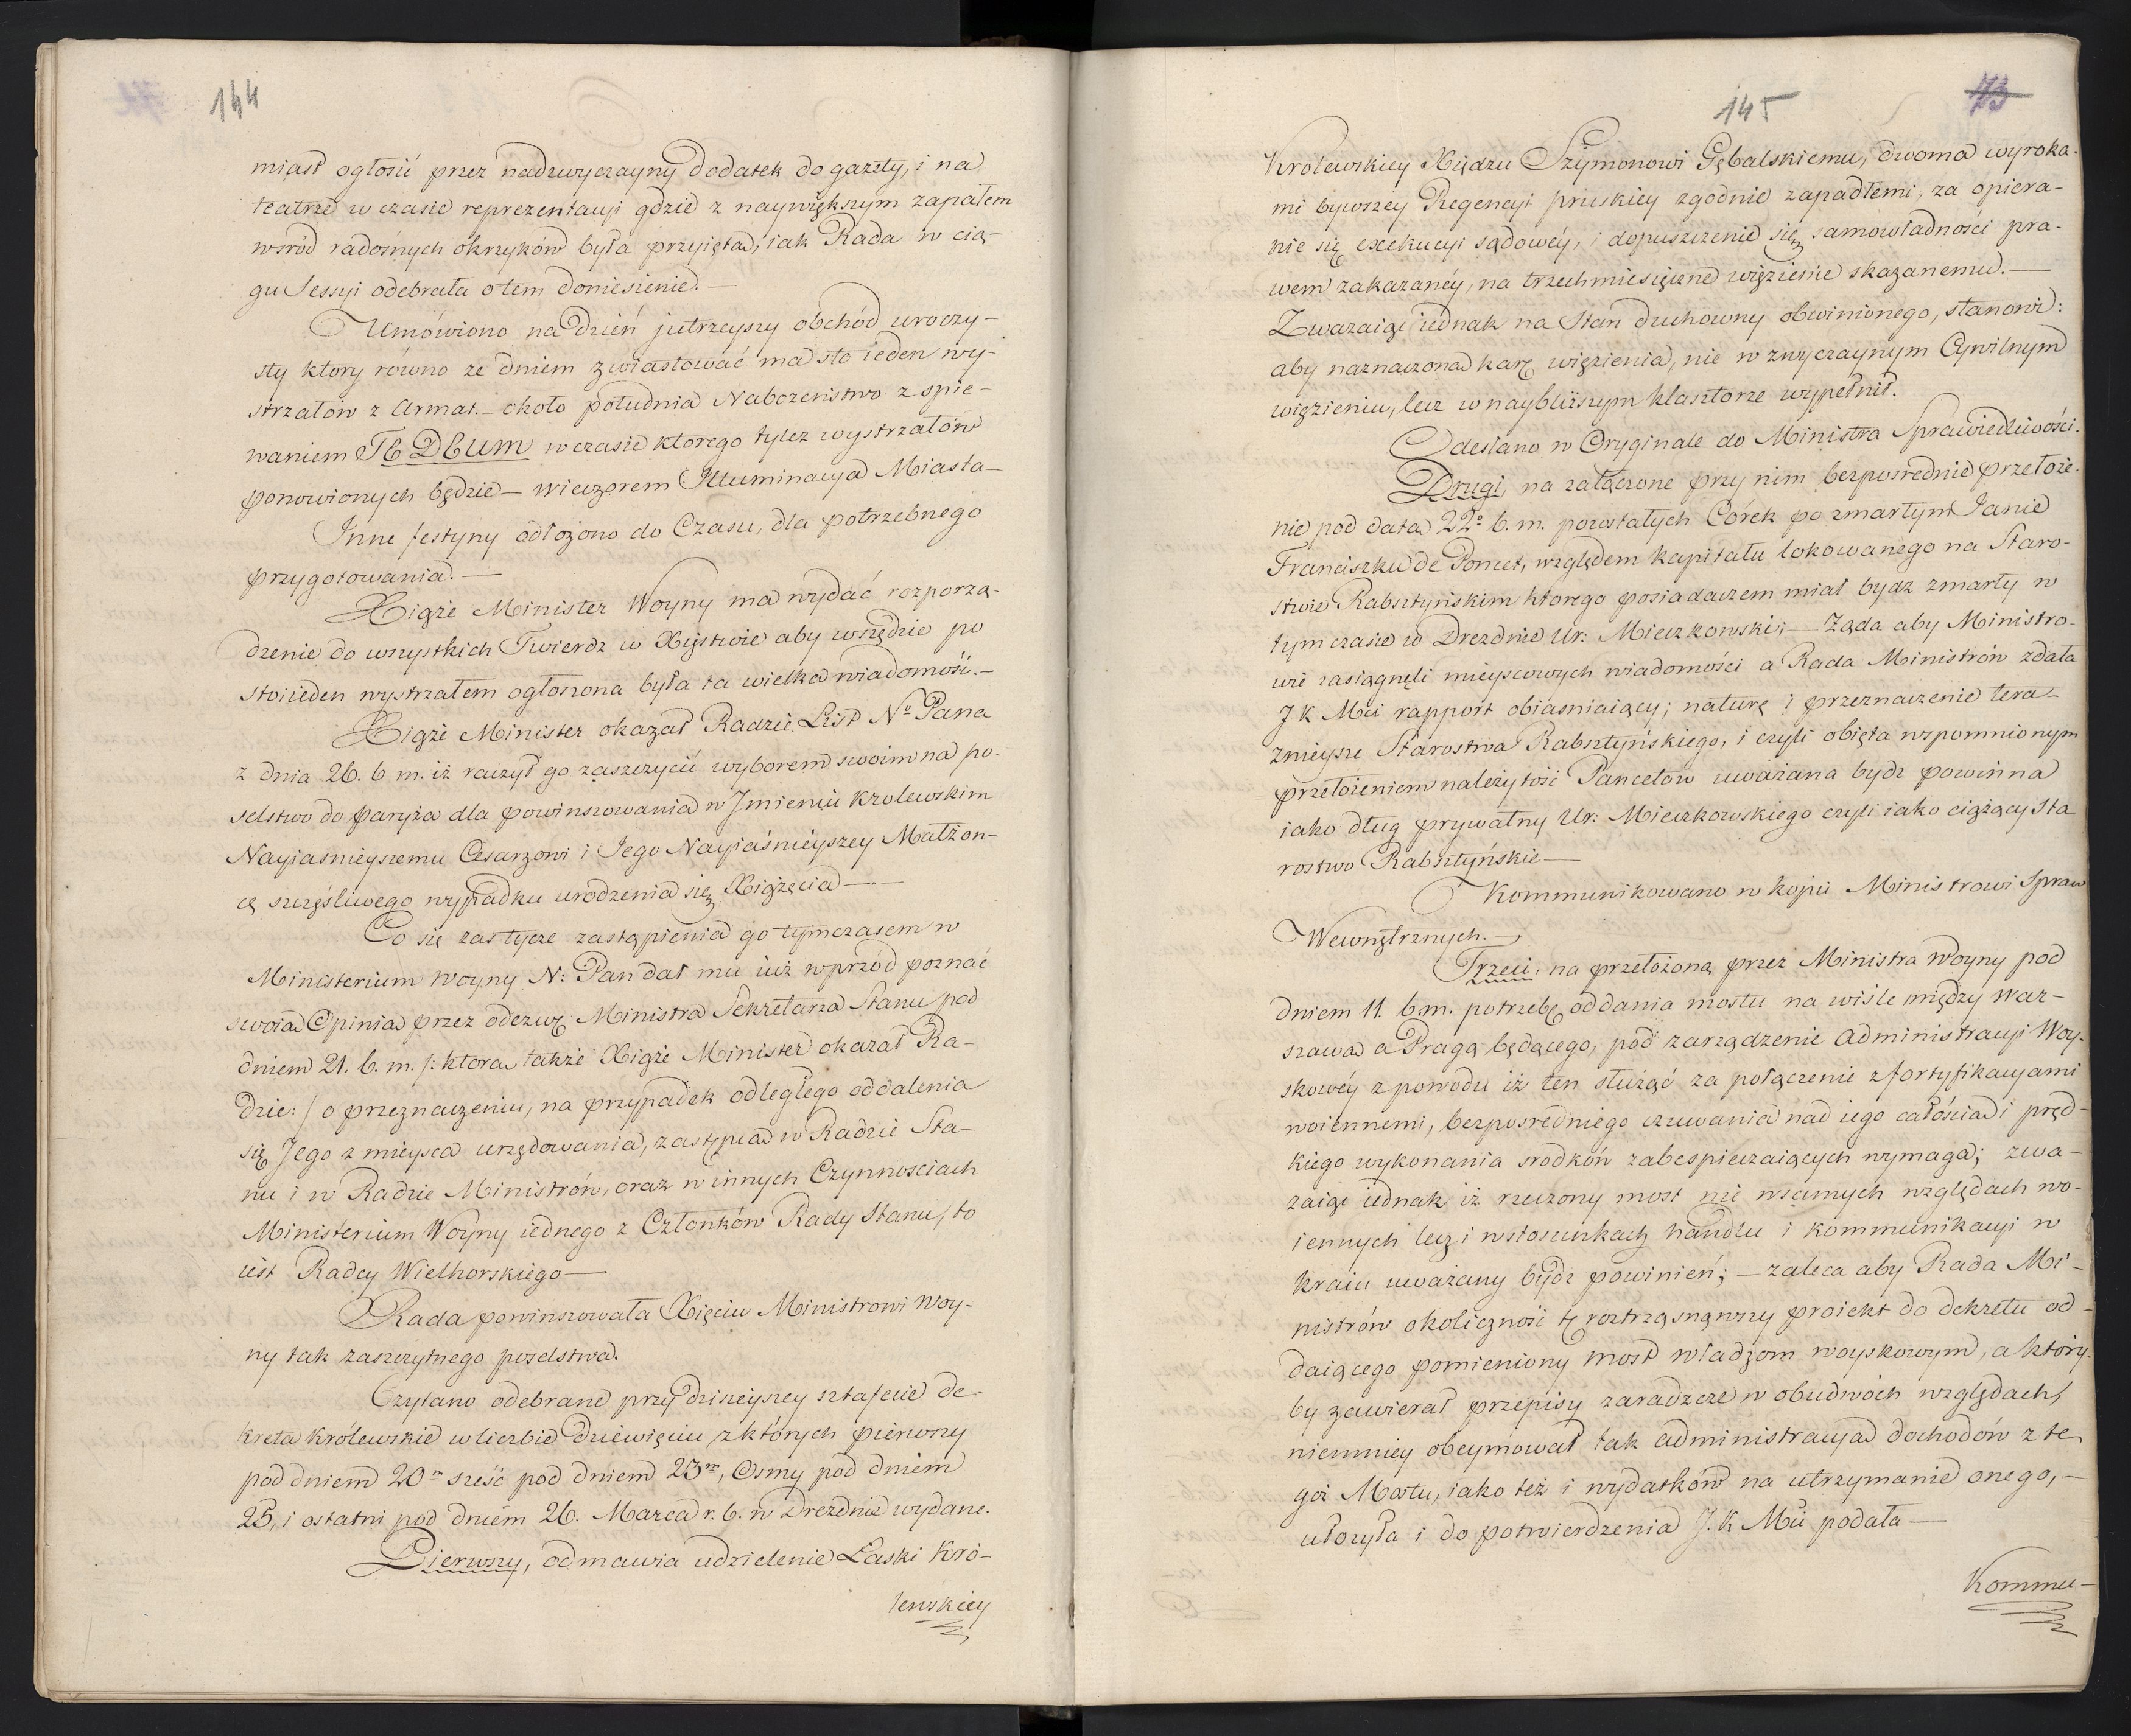 144
miast ogłosić przez nadzwyczayny dodatek do gazety, i na
teatrze w czasie reprezentacyi gdzie z naywiększym zapałem
wsród radośnych okrzyków była przyięta, iak Rada w cią-
gu Sessyi odebrała o tem doniesienie.—
Umówiono na dzień jutrzeyszy obchód uroczy-
sty ktory równo ze dniem zwiastować ma sto ieden wy-
strzałów z Armat.— około południa Nabożeństwo z spie-
waniem TE DEUM w czasie ktorego tyleż wystrzałów
ponowionych będzie— wieczorem Illuminacya Miasta—
Inne festyny odłożono do Czasu, dla potrzebnego
przygotowania.—
Xiąże Minister Woyny ma wydać rozporzą-
dzenie do wszystkich Twierdz w Xięstwie aby wszędzie po
stoiieden wystrzałem ogłoszona była ta wielka wiadomość.—
Xiąże Minister okazał Radzie List No Pana
z dnia 26. b m. iż raczył go zaszczycić wyborem swoim na po-
selstwo do Paryża dla powinszowania w Jmieniu Krolewskim
Nayiasnieyszemu Cesarzowi i Jego Nayiaśnieyszey Małżon-
cę szczęśliwego wypadku urodzenia się Xiążęcia—
Co się zastycze zastąpienia go tymczasem w
Ministerium Woyny N: Pan dał mu iuż wprzód poznać
swoia Opinia przez odezwę Ministra Sekretarza Stanu pod
dniem 21. b. m. /: ktora także Xiąże Minister okazał Ra-
dzie: / o przeznaczeniu, na przypadek odległego oddalenia
się Jego z mieysca urzędowania, zastępcą w Radzie Sta-
nu i w Radzie Ministrów, oraz w innych Czynnosciach
Ministerium Woyny iednego z Członków Rady Stanu, to
iest Radcy Wielhorskiego—
Rada powinszowała Xięciu Ministrowi Woy-
ny tak zaszczytnego poselstwa.
Czytano odebrane przy dzisieyszey sztafecie de-
kreta Królewskie w liczbie dziewięciu z których pierwszy
pod dniem 20m sześć pod dniem 23m, Osmy pod dniem
25, i ostatni pod dniem 26. Marca r. b. w Dreznie wydane.
Pierwszy, odmawia udzielenie Łaski Kró-
lewskiey
145
73
Krolewskiey Xiędzu Szymonowi Gębalskiemu, dwoma wyroka-
mi bywszey Regencyi pruskiey zgodnie zapadłemi, za opiera-
nie się exekucyi sądowéy, i dopuszczenie się samowładności pra-
wem zakazanéy, na trzechmiesięczne więzienie skazanemu.—
Zwazaiąc iednak na Stan duchowny obwinionego, stanowi:
aby naznaczona karę więzienia, nie w zwyczaynym Cywilnym
więzieniu, lecz w naybliższym klasztorze wypełnił.
Odesłano w Oryginale do Ministra Sprawiedliwości.
Drugi, na załączone przy nim bezpośrednie przełoże-
nie pod data 22o b. m. pozostałych Córek po zmarłym Janie
Franciszku de Poncet, względem kapitału lokowanego na Staro-
stwie Rabsztyńskim ktorego posiadaczem miał bydz zmarły w
tym czasie w Dreznie Ur: Mieczkowski;— Żąda aby Ministro-
wie zasiągnęli mieyscowych wiadomości a Rada Ministrów zdała
J K Mci rapport obiasniaiący; naturę i przeznaczenie tera-
znieysze Starostwa Rabsztyńskiego, i czyli obięta wzpomnionym
przełożeniem należytość Poncetów uważana bydz powinna
iako dług prywatny Ur: Mieczkowskiego czyli iako ciążący Sta
rostwo Rabsztyńskie—
Kommunikowano w kopii Ministrowi Spraw
Wewnętrznych.—
Trzeci, na przełożoną przez Ministra Woyny pod
dniem 11. b.m. potrzebę oddania mostu na wiśle między War-
szawa a Pragą będącego, pod zarządzenie Administracyi Woy-
skowéy z powodu iż ten służąć za połączenie z fortyfikacyami
woiennemi, bezpośredniego czuwania nad iego całościa i pręd-
kiego wykonania srodków zabespieczaiących wymaga; zwa-
zaiąc iednak iż rzeczony most nie w samych względach wo-
iennych lecz i w stosunkach handlu i kommunikacyi w
kraiu uważany bydz powinień;— zaleca aby Rada Mi-
nistrów okoliczność tę roztrząsnąwszy proiekt do dekretu od-
daiącego pomieniony most władzom woyskowym, a który-
by zawierał przepisy zaradcze w obudwóch względach,
niemniey obeymował tak administracya dochodów z te
goż Mostu, iako też i wydatków na utrzymanie onego,—
ułożyła i do potwierdzenia J. K Mci podała—
Kommu-